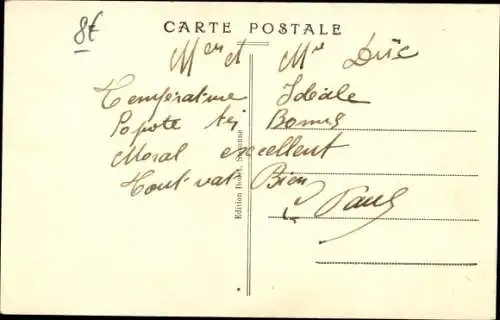 8€
CARTE POSTALE
Mr et Mme Duc
Température Idéale
Popote très Bonne
Moral excellent
Tout va Bien
Paul
Edition